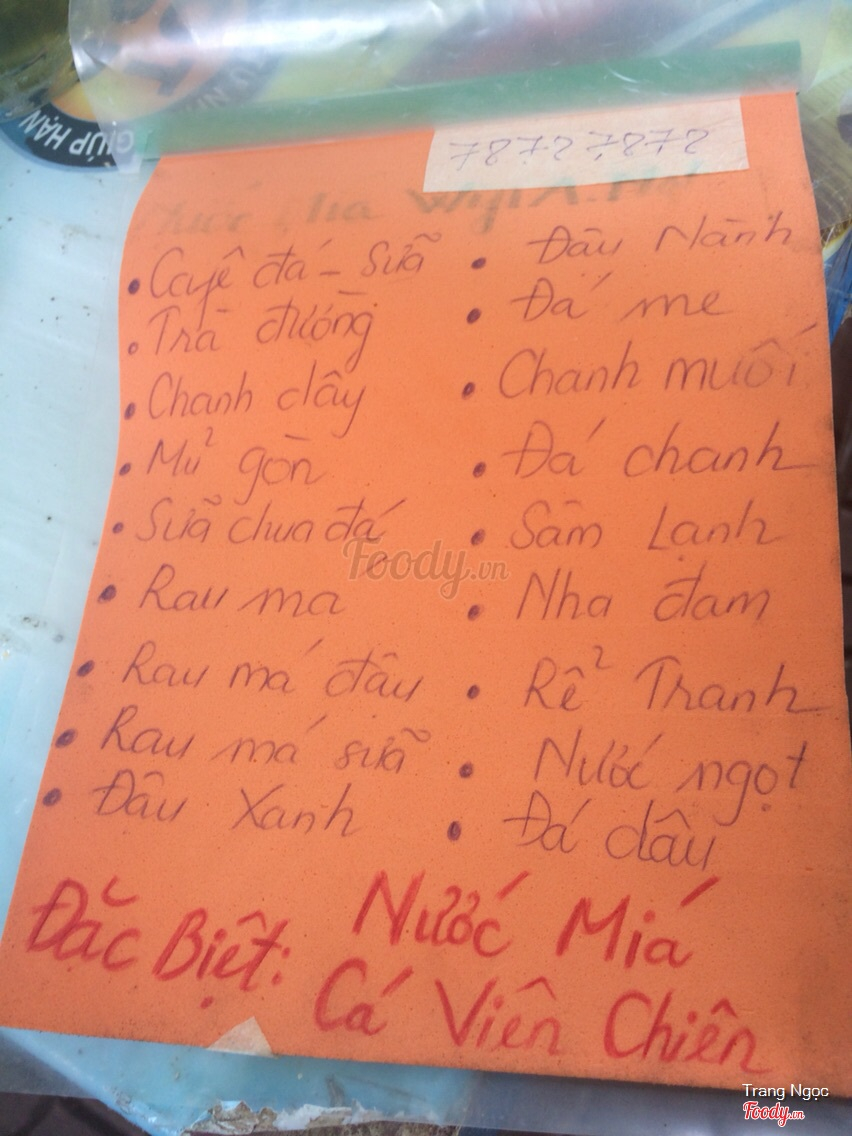 GIÚP HẠN
78727872
• Cafê đá - Sữa
• Trà đường
• Chanh dây
• Mủ gòn
• Sữa chua đá
• Rau ma
• Rau má đậu
• Rau má sữa
• Đậu Xanh
• Đâu Nành
• Đá me
• Chanh muối
• Đá chanh
• Sâm Lạnh
• Nha đam
• Rể Tranh
• Nước ngọt
• Đá dâu
Đặc Biệt: Nước Miá
Cá Viên Chiên
Foody.vn
Trang Ngọc
Foody.vn